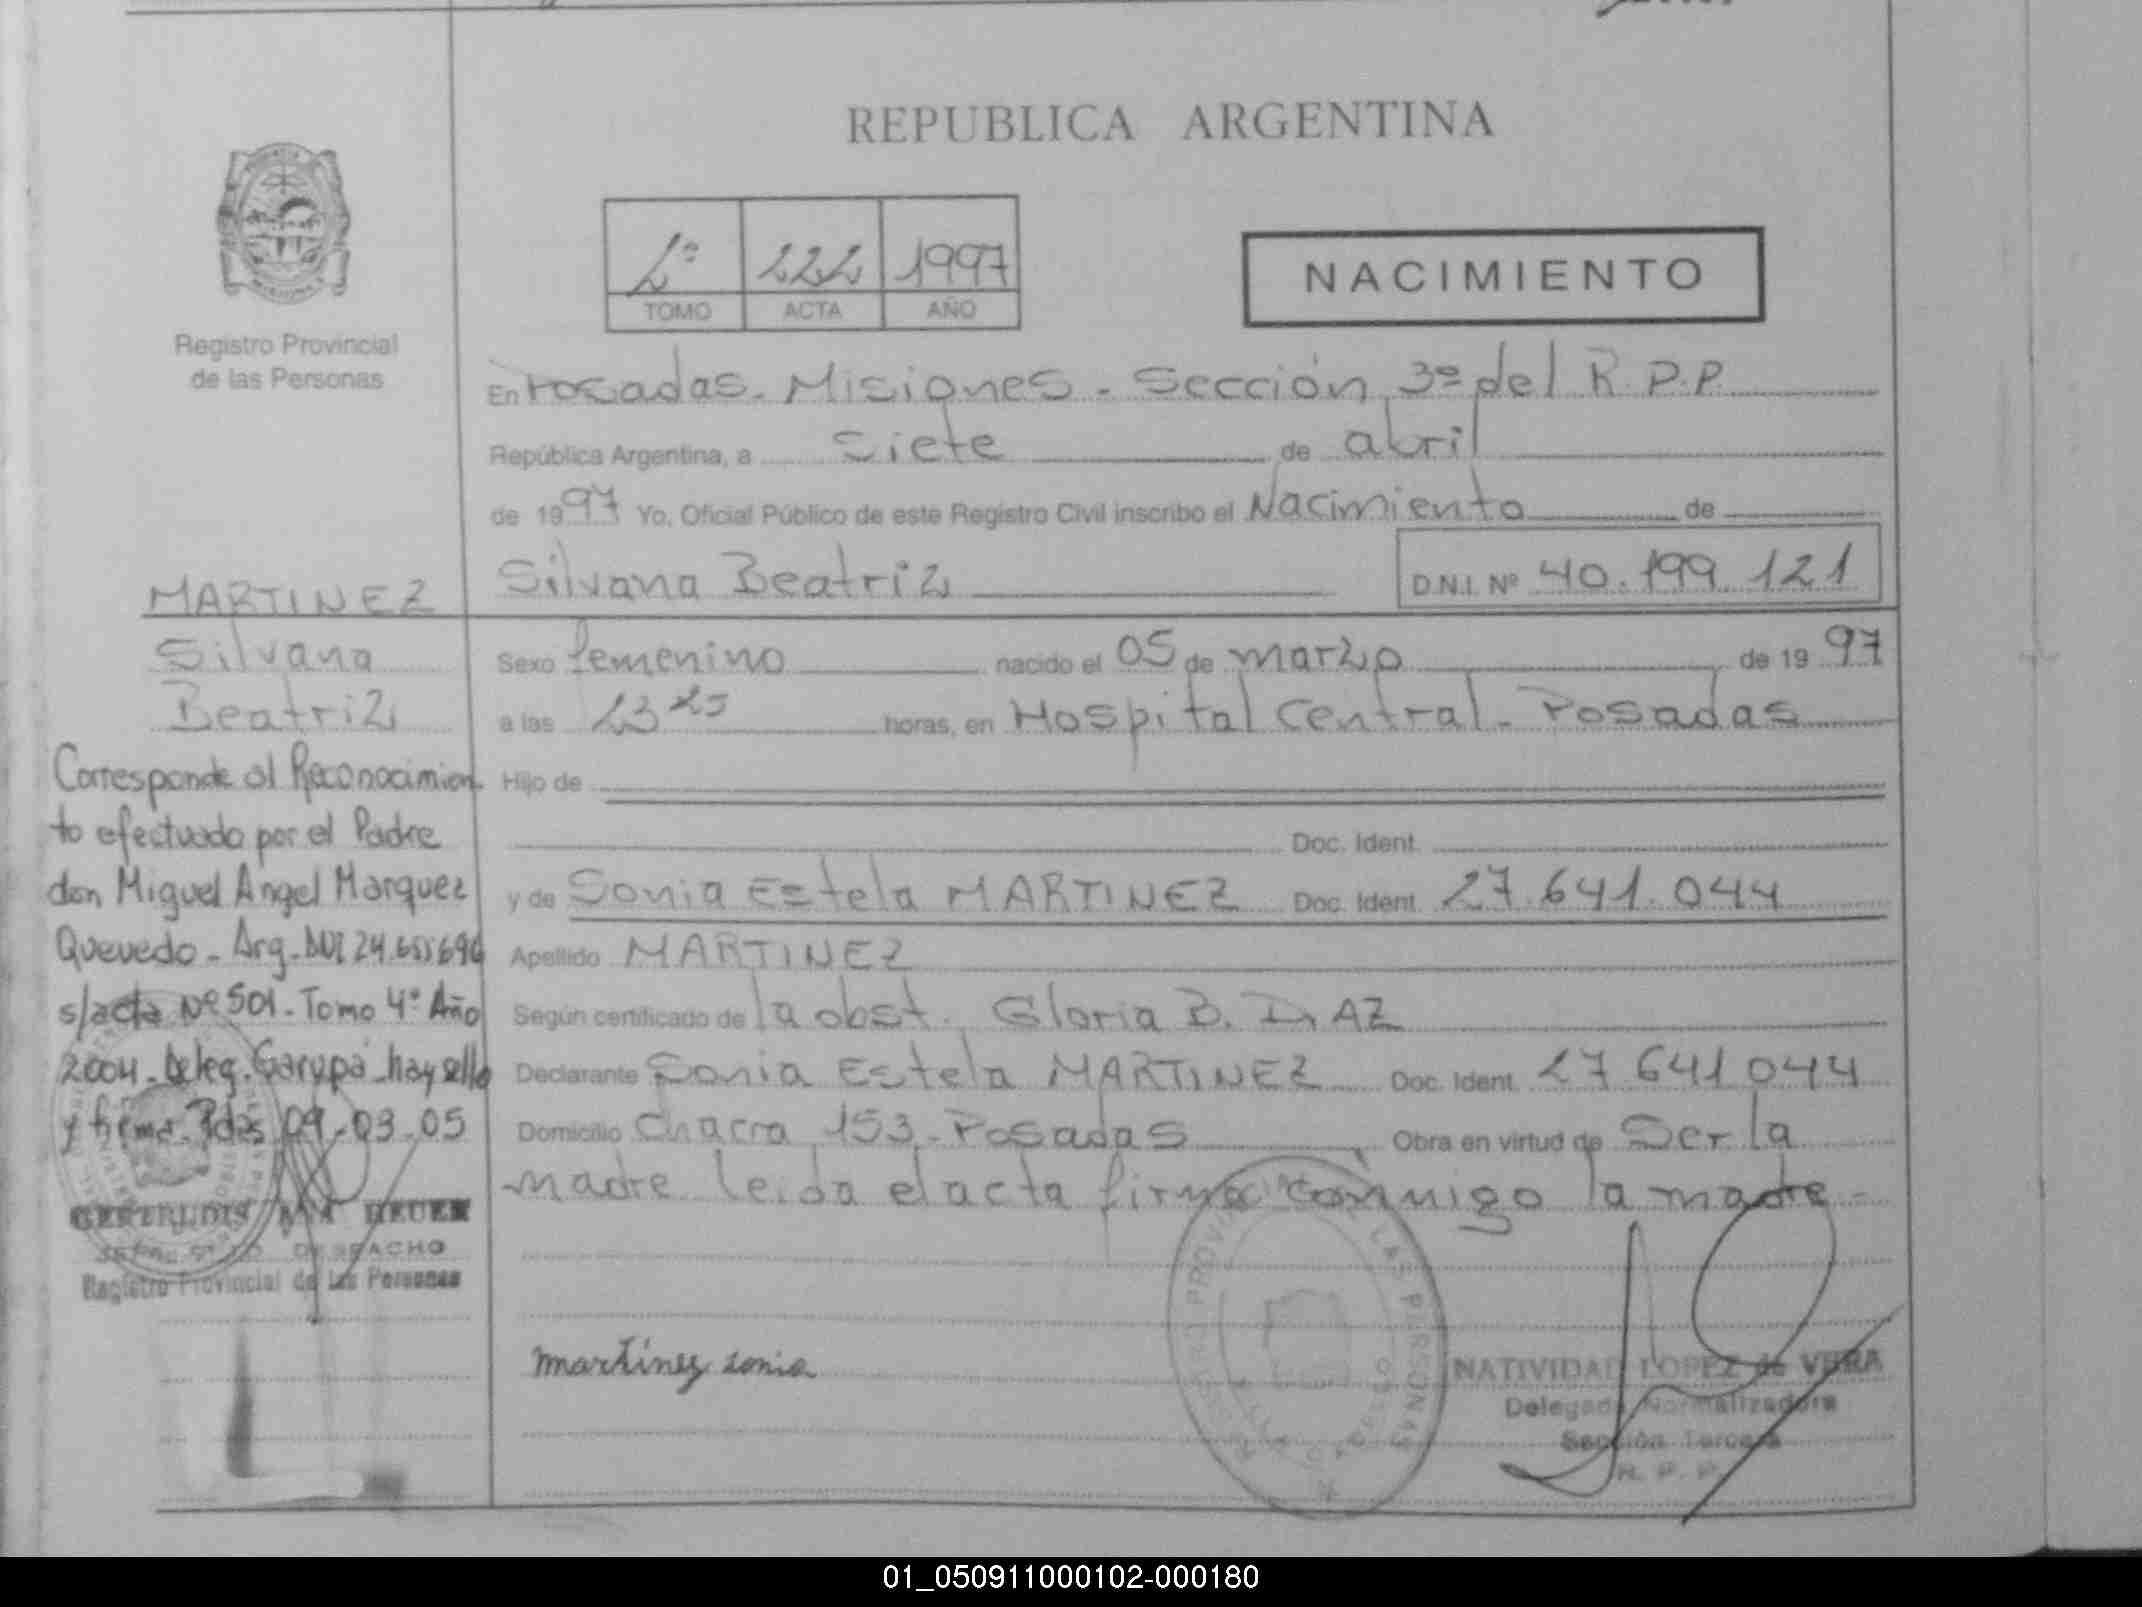 REPUBLICA ARGENTINA
Registro Provincial
de las Personas
2º 222 1997
TOMO ACTA AÑO
NACIMIENTO
En Posadas - Misiones - Sección 3º del R.P.P
República Argentina, a siete de abril
de 1997 Yo, Oficial Público de este Registro Civil inscribo el Nacimiento de
Silvana Beatriz D.N.I. Nº 40.199.121
MARTINEZ
Silvana
Beatriz
Corresponde al Reconocimien
to efectuado por el Padre
don Miguel Angel Marquez
Quevedo - Arg. DNI
s/acta Nº 501 - Tomo 4º Año
2004 - Deleg. Garupá - hay sello
y firma. Pdas 09-03-05
DESPACHO
Registro Provincial de las Personas
Sexo femenino nacido el 05 de marzo de 1997
a las 23 25 horas, en Hospital Central - Posadas
Hijo de
Doc. Ident.
y de Sonia Estela MARTINEZ Doc. Ident. 27.641.044
Apellido MARTINEZ
Según certificado de la obst. Gloria B. DIAZ
Declarante Sonia Estela MARTINEZ Doc. Ident. 27 641 044
Domicilio Chacra 153 - Posadas Obra en virtud de Ser la
madre leida el acta firma conmigo la madre -
martinez sonia
NATIVIDAD LOPEZ de VERA
Delegada Normalizadora
Sección Tercera
R. P. P.
01_050911000102-000180